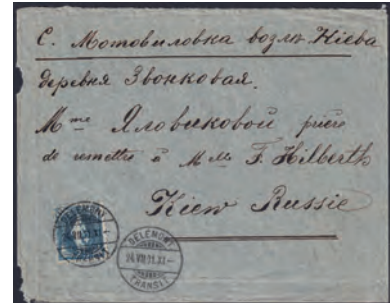 С. Мотовиловка возлѣ Кіева
деревня Звонковая.
Mme Яловиковой prière
de remettre à Mlle F. Hilberth
Kiew Russie
DELÉMONT
DELÉMONT
24.VII.11.XI-
TRANSIT